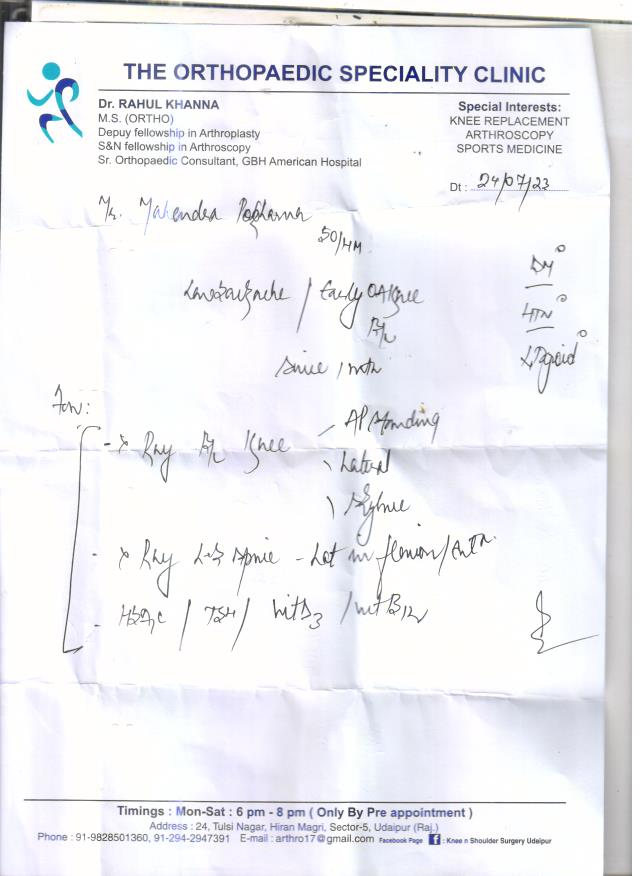 THE ORTHOPAEDIC SPECIALITY CLINIC
Dr. RAHUL KHANNA
M.S. (ORTHO)
Depuy fellowship in Arthroplasty
S&N fellowship in Arthroscopy
Sr. Orthopaedic Consultant, GBH American Hospital
Special Interests:
KNEE REPLACEMENT
ARTHROSCOPY
SPORTS MEDICINE
Dt : 24/07/23
Mr. Mahendra
50/M
/ Early OA Knee
B/L
Since 1 mth
DM°
HTN°
Thyroid°
- X Ray B/L Knee
AP Standing
Lateral
Skyline
- X Ray L-S Spine - Lat in flexion/extn.
- HbA1c / TSH / Vit D3 / Vit B12
Timings : Mon-Sat : 6 pm - 8 pm ( Only By Pre appointment )
Address : 24, Tulsi Nagar, Hiran Magri, Sector-5, Udaipur (Raj.)
Phone : 91-9828501360, 91-294-2947391 E-mail : arthro17@gmail.com Facebook Page f : Knee n Shoulder Surgery Udaipur